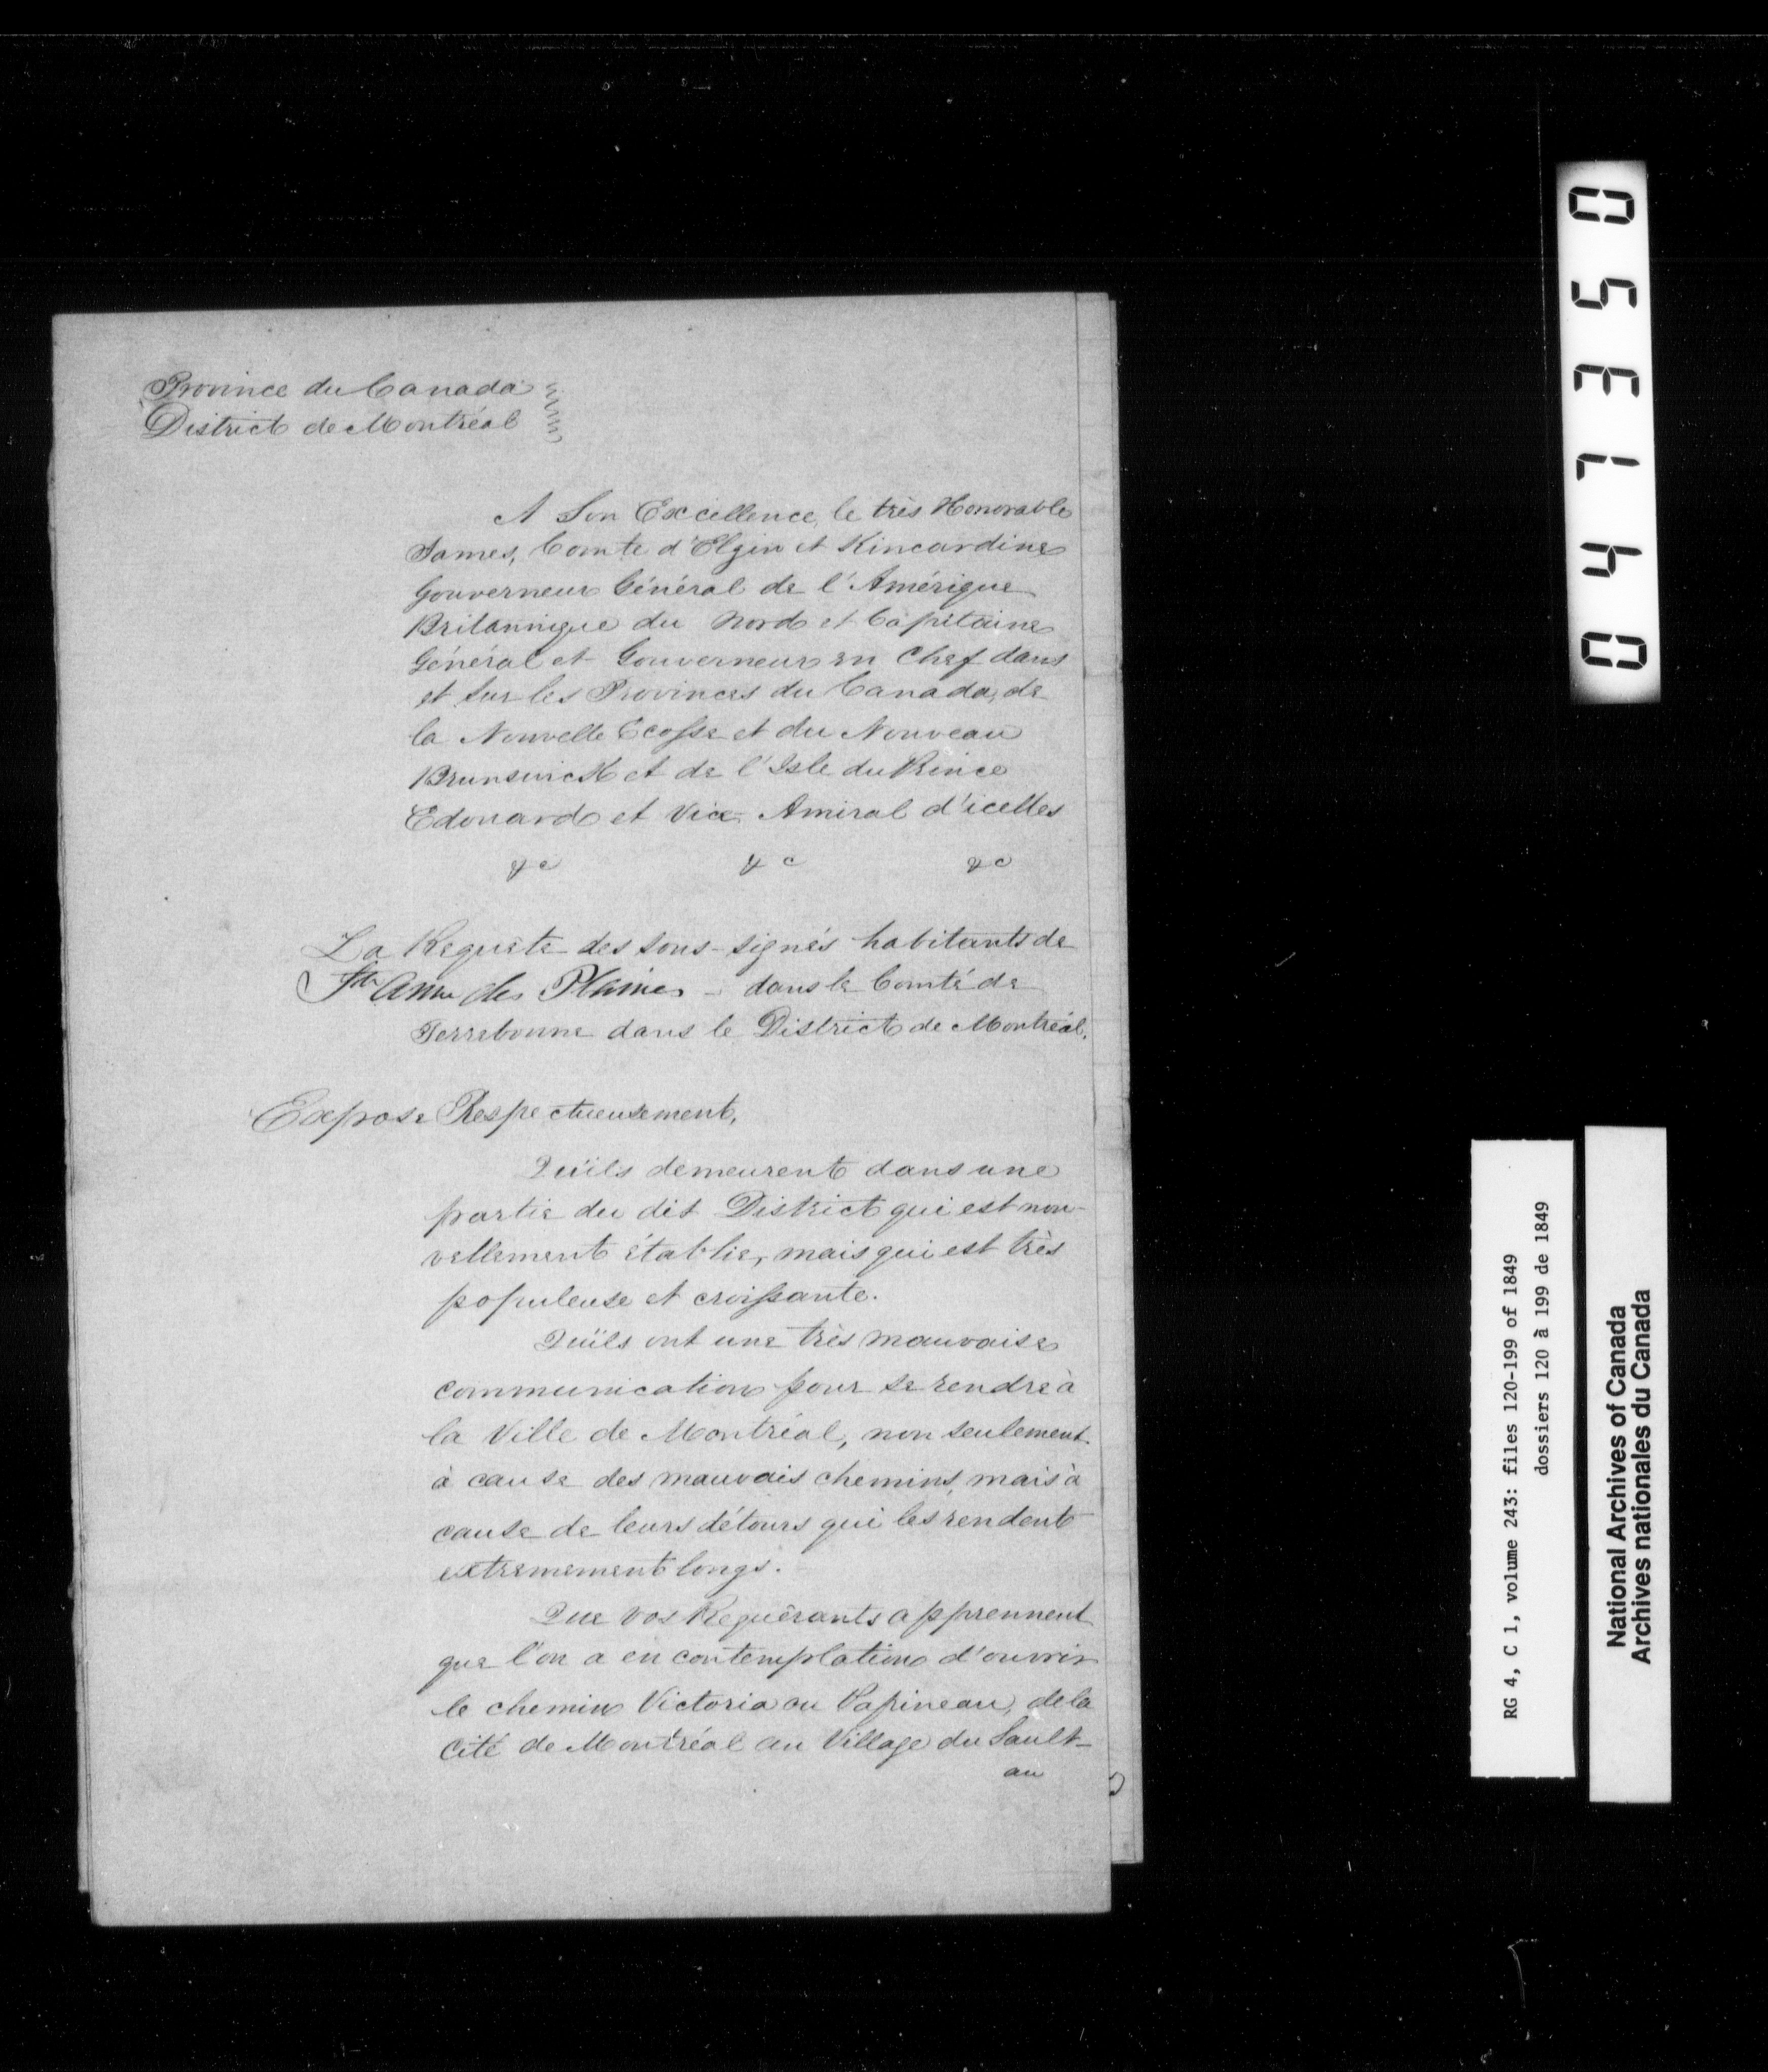 Province du Canada
District de Montréal
A Son Excellence, le très Honorable
James, Comte d'Elgin et Kincardine
Gouverneur Général de l'Amérique
Britannique du Nord et Capitaine
Général et Gouverneur en Chef dans
et sur les Provinces du Canada, de
la Nouvelle Ecosse et du Nouveau
Brunswick et de l'Isle du Prince
Edouard et Vice-Amiral d'icelles
&c &c &c
La Requête des sous-signés habitants de
Ste Anne des Plaines - dans le Comté de
Terrebonne dans le District de Montréal.
Expose Respectueusement,
Qu'ils demeurent dans une
partie du dit District qui est nou-
vellement établie, mais qui est très
populeuse et croissante.
Qu'ils ont une très mauvaise
communication pour se rendre à
la Ville de Montréal, non seulement
à cause des mauvais chemins, mais à
cause de leurs détours qui les rendent
extremement longs.
Que vos Requérants apprennent
que l'on a en contemplation d'ouvrir
le chemin Victoria ou Papineau, de la
Cité de Montréal au Village du Sault-
au
047350
RG 4, C 1, volume 243: files 120-199 of 1849
dossiers 120 à 199 de 1849
National Archives of Canada
Archives nationales du Canada